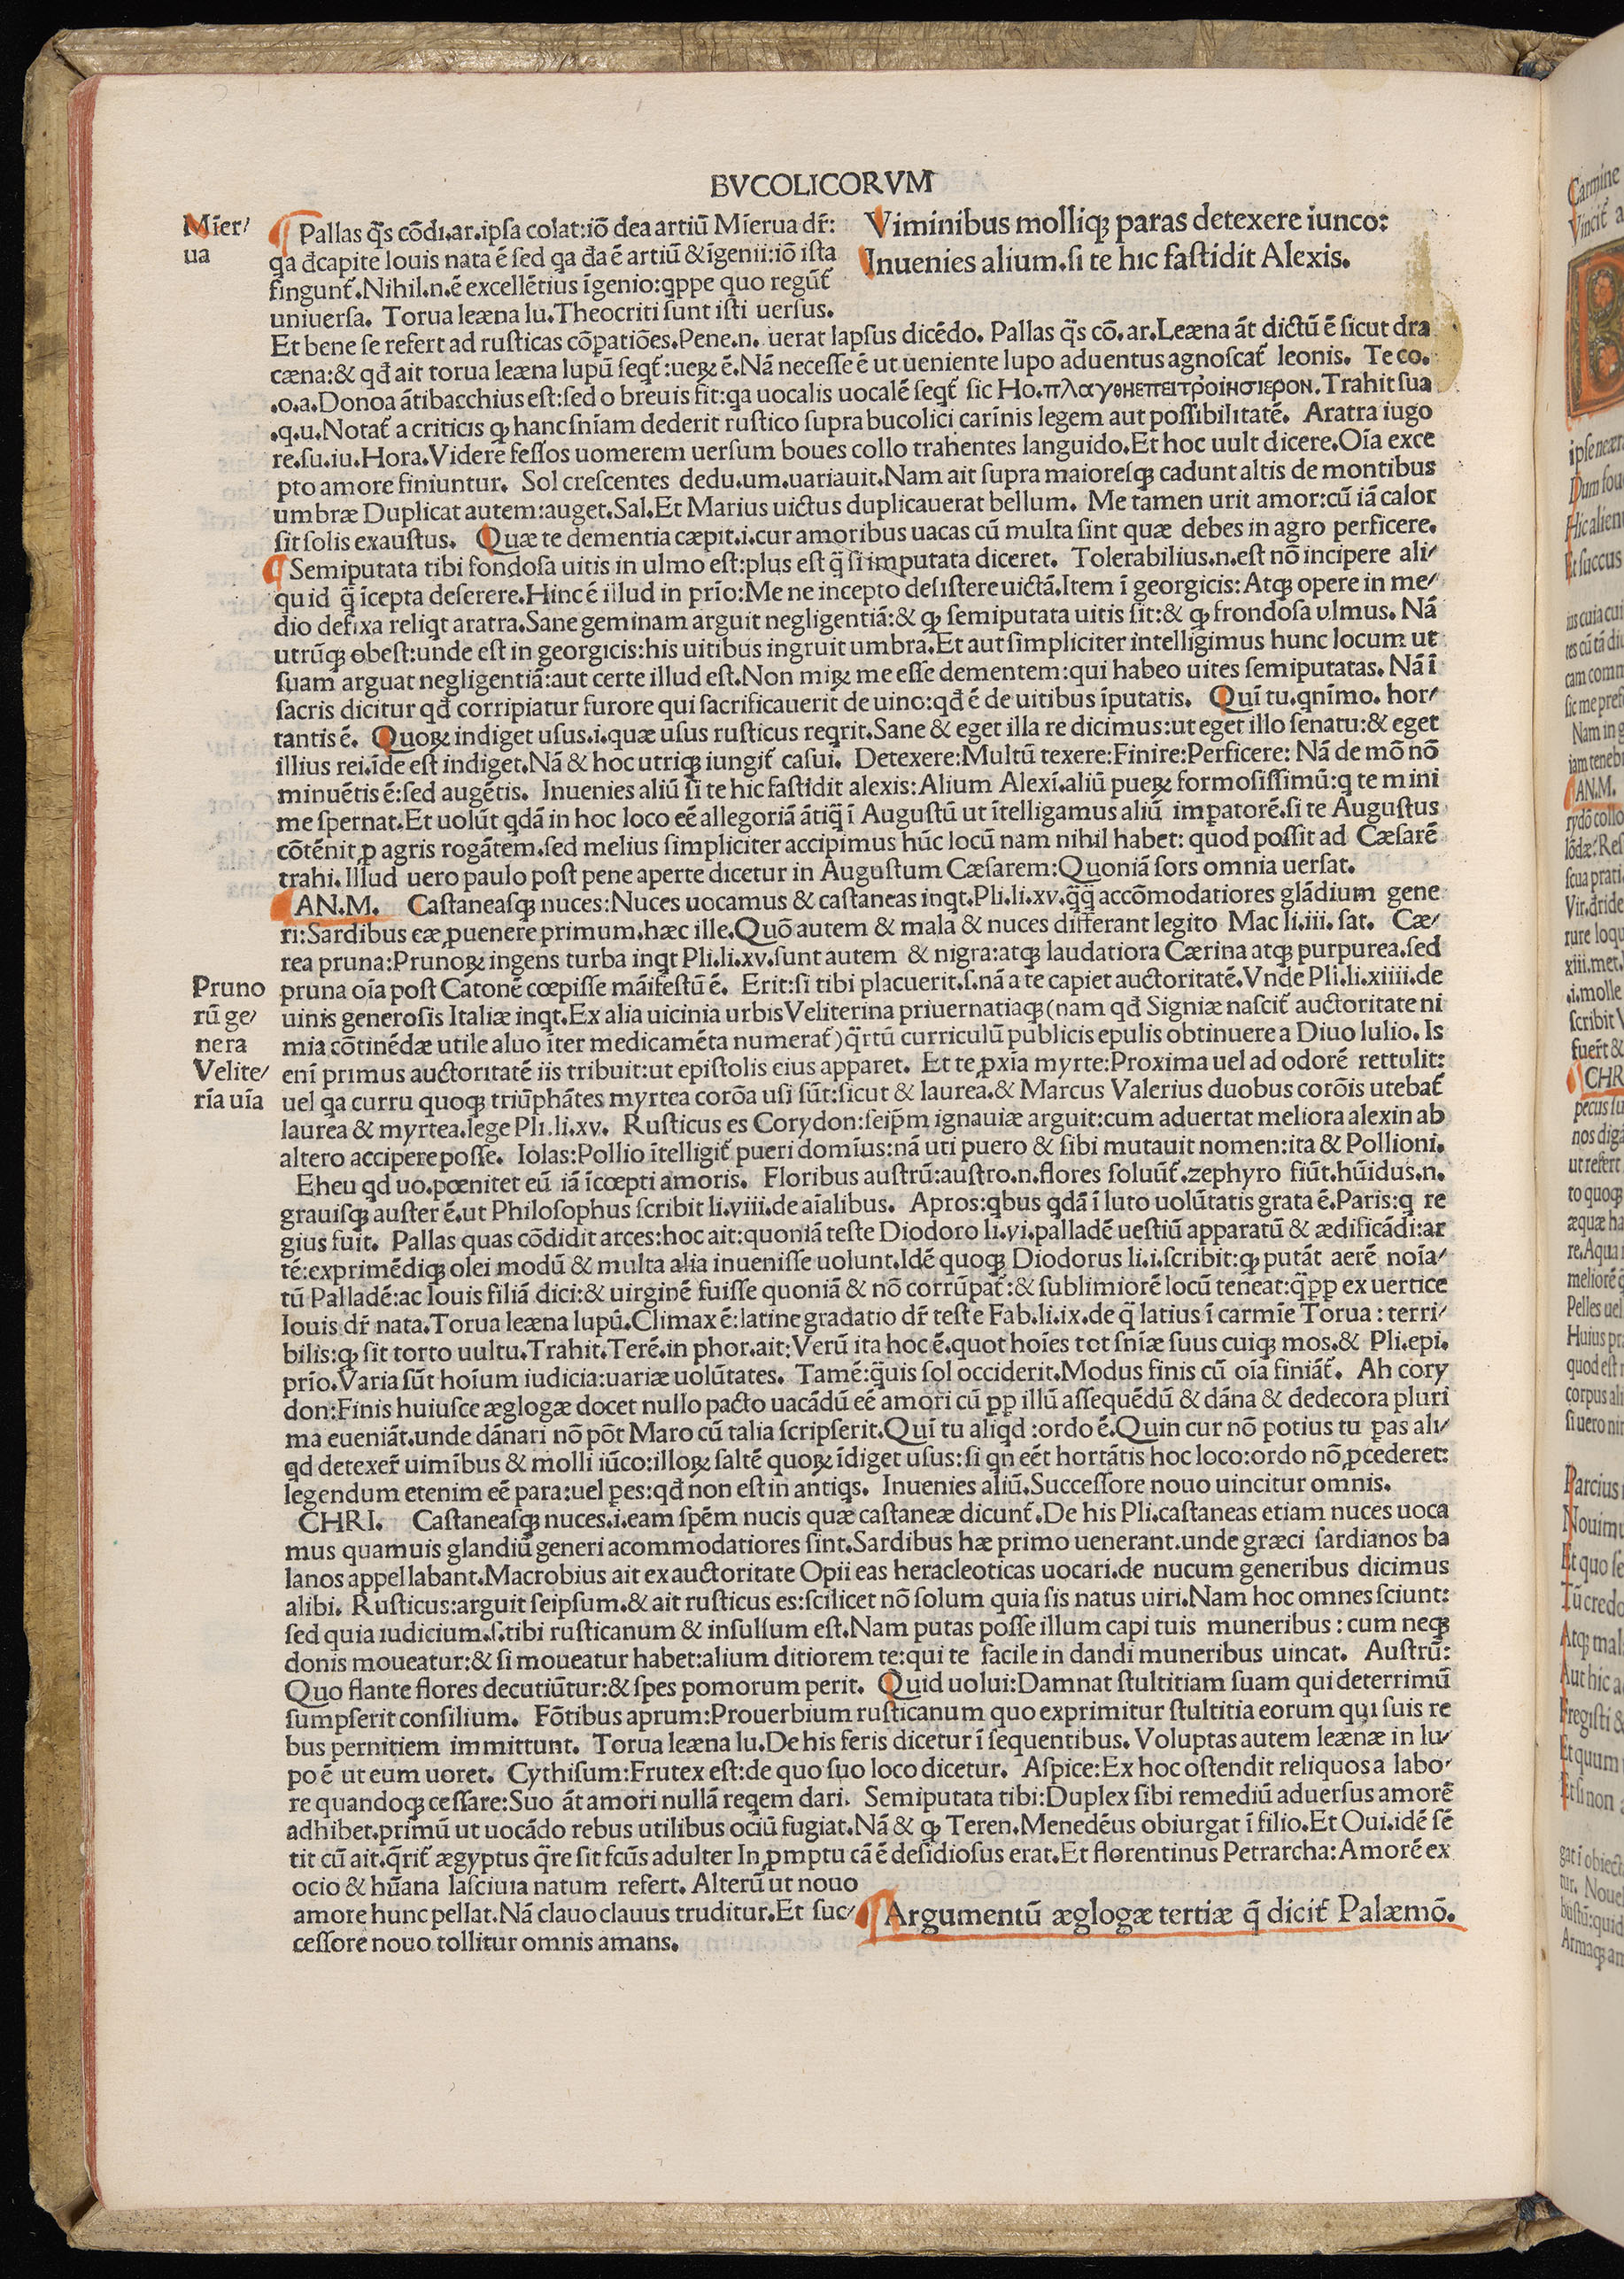 BVCOLICORVM
Viminibus molliqꝫ paras detexere iunco:
Inuenies alium.ſi te hic faſtidit Alexis.
Mīer/
ua
Pallas q̄s cōdi.ar.ipſa colat:iō dea artiū Mīerua dr̄:
qa đcapite Iouis nata ē ſed qa đa ē artiū & īgenii:iō iſta
fingunt̄.Nihil.n.ē excellētius īgenio:qppe quo regūt̄
uniuerſa. Torua leæna lu.Theocriti ſunt iſti uerſus.
Et bene ſe refert ad ruſticas cōꝑatiōes.Pene.n. uerat lapſus dicēdo. Pallas q̄s cō.ar.Leæna āt dictū ē ſicut dra
cæna:& qđ ait torua leæna lupū ſeqt̄:ueꝝ ē.Nā neceſſe ē ut ueniente lupo aduentus agnoſcat̄ leonis. Te co.
.o.a.Donoa ātibacchius eſt:ſed o breuis fit:qa uocalis uocalē ſeqt̄ ſic Ho. Trahit ſua
.q.u.Notat̄ a criticis ꝙ hanc ſnīam dederit ruſtico ſupra bucolici carīnis legem aut poſſibilitatē. Aratra iugo
re.ſu.iu.Hora.Videre feſſos uomerem uerſum boues collo trahentes languido.Et hoc uult dicere.Oīa exce
pto amore finiuntur. Sol creſcentes dedu.um.uariauit.Nam ait ſupra maioreſqꝫ cadunt altis de montibus
umbræ Duplicat autem:auget.Sal.Et Marius uictus duplicauerat bellum. Me tamen urit amor:cū iā calor
ſit ſolis exauſtus. Quæ te dementia cæpit.i.cur amoribus uacas cū multa ſint quæ debes in agro perficere.
Semiputata tibi fondoſa uitis in ulmo eſt:plus eſt q̄ ſi imputata diceret. Tolerabilius.n.eſt nō incipere ali/
quid q̄ īcepta deſerere.Hinc ē illud in prīo:Me ne incepto deſiſtere uictā.Item ī georgicis:Atqꝫ opere in me/
dio defixa reliqt aratra.Sane geminam arguit negligentiā:& ꝙ ſemiputata uitis ſit:& ꝙ frondoſa ulmus. Nā
utrūqꝫ obeſt:unde eſt in georgicis:his uitibus ingruit umbra.Et aut ſimpliciter intelligimus hunc locum ut
ſuam arguat negligentiā:aut certe illud eſt.Non miꝝ me eſſe dementem:qui habeo uites ſemiputatas. Nā ī
ſacris dicitur qđ corripiatur furore qui ſacrificauerit de uino:qđ ē de uitibus īputatis. Quī tu.qnīmo. hor/
tantis ē. Quoꝝ indiget uſus.i.quæ uſus ruſticus reqrit.Sane & eget illa re dicimus:ut eget illo ſenatu:& eget
illius rei.īde eſt indiget.Nā & hoc utriqꝫ iungit̄ caſui. Detexere:Multū texere:Finire:Perficere: Nā de mō nō
minuētis ē:ſed augētis. Inuenies aliū ſi te hic faſtidit alexis:Alium Alexī.aliū pueꝝ formoſiſſimū:q te mini
me ſpernat.Et uolūt qdā in hoc loco eē allegoriā ātiq̄ ī Auguſtū ut ītelligamus aliū imꝑatorē.ſi te Auguſtus
cōtēnit ꝓ agris rogātem.ſed melius ſimpliciter accipimus hūc locū nam nihil habet: quod poſſit ad Cæſarē
trahi. Illud uero paulo poſt pene aperte dicetur in Auguſtum Cæſarem:Quoniā ſors omnia uerſat.
AN.M. Caſtaneaſqꝫ nuces:Nuces uocamus & caſtaneas inqt.Pli.li.xv.q̄q̄ accōmodatiores glādium gene
ri:Sardibus eæ ꝓuenere primum.hæc ille.Quō autem & mala & nuces differant legito Mac li.iii. ſat. Cæ/
rea pruna:Prunoꝝ ingens turba inqt Pli.li.xv.ſunt autem & nigra:atqꝫ laudatiora Cærina atqꝫ purpurea.ſed
Pruno
rū ge/
nera
Velite/
ria uīa
pruna oīa poſt Catonē cœpiſſe māifeſtū ē. Erit:ſi tibi placuerit.ſ.nā a te capiet auctoritatē.Vnde Pli.li.xiiii.de
uinis generoſis Italiæ inqt.Ex alia uicinia urbis Veliterina priuernatiaqꝫ(nam qđ Signiæ naſcit̄ auctoritate ni
mia cōtinēdæ utile aluo īter medicamēta numerat̄)q̄rtū curriculū publicis epulis obtinuere a Diuo Iulio. Is
enī primus auctoritatē iis tribuit:ut epiſtolis eius apparet. Et te ꝓxīa myrte:Proxima uel ad odorē rettulit:
uel qa curru quoqꝫ triūphātes myrtea corōa uſi ſūt:ſicut & laurea.& Marcus Valerius duobus corōis utebat̄
laurea & myrtea.lege Pli.li.xv. Ruſticus es Corydon:ſeip̄m ignauiæ arguit:cum aduertat meliora alexin ab
altero accipere poſſe. Iolas:Pollio ītelligit̄ pueri domīus:nā uti puero & ſibi mutauit nomen:ita & Pollioni.
Eheu qd uo.pœnitet eū iā īcœpti amoris. Floribus auſtrū:auſtro.n.flores ſoluūt̄.zephyro fiūt.hūidus.n.
grauiſqꝫ auſter ē.ut Philoſophus ſcribit li.viii.de aīalibus. Apros:qbus qdā ī luto uolūtatis grata ē.Paris:q re
gius fuit. Pallas quas cōdidit arces:hoc ait:quoniā teſte Diodoro li.vi.palladē ueſtiū apparatū & ædificādi:ar
tē:exprimēdiqꝫ olei modū & multa alia inueniſſe uolunt.Idē quoqꝫ Diodorus li.i.ſcribit:ꝙ putāt aerē noīa/
tū Palladē:ac Iouis filiā dici:& uirginē fuiſſe quoniā & nō corrūpat̄:& ſublimiorē locū teneat:q̄ꝓp ex uertice
Iouis dr̄ nata.Torua leæna lupū.Climax ē:latine gradatio dr̄ teſte Fab.li.ix.de q̄ latius ī carmīe Torua : terri/
bilis:ꝙ ſit torto uultu.Trahit.Terē.in phor.ait:Verū ita hoc ē.quot hoīes tot ſnīæ ſuus cuiqꝫ mos.& Pli.epi.
prīo.Varia ſūt hoīum iudicia:uariæ uolūtates. Tamē:q̄uis ſol occiderit.Modus finis cū oīa finiāt̄. Ah cory
don:Finis huiuſce æglogæ docet nullo pacto uacādū eē amori cū ꝓp illū aſſequēdū & dāna & dedecora pluri
ma eueniāt.unde dānari nō pōt Maro cū talia ſcripſerit.Quī tu aliqd :ordo ē.Quin cur nō potius tu ꝑas ali/
qd detexer̄ uimībus & molli iūco:illoꝝ ſaltē quoꝝ īdiget uſus:ſi qn eēt hortātis hoc loco:ordo nō ꝓcederet:
legendum etenim eē para:uel ꝑes:qđ non eſt in antiqs. Inuenies aliū.Succeſſore nouo uincitur omnis.
CHRI. Caſtaneaſqꝫ nuces.i.eam ſpēm nucis quæ caſtaneæ dicunt̄.De his Pli.caſtaneas etiam nuces uoca
mus quamuis glandiū generi acommodatiores ſint.Sardibus hæ primo uenerant.unde græci ſardianos ba
lanos appellabant.Macrobius ait ex auctoritate Opii eas heracleoticas uocari.de nucum generibus dicimus
alibi. Ruſticus:arguit ſeipſum.& ait ruſticus es:ſcilicet nō ſolum quia ſis natus uiri.Nam hoc omnes ſciunt:
ſed quia iudicium.ſ.tibi ruſticanum & inſulſum eſt.Nam putas poſſe illum capi tuis muneribus : cum neqꝫ
donis moueatur:& ſi moueatur habet:alium ditiorem te:qui te facile in dandi muneribus uincat. Auſtrū:
Quo flante flores decutiūtur:& ſpes pomorum perit. Quid uolui:Damnat ſtultitiam ſuam qui deterrimū
ſumpſerit conſilium. Fōtibus aprum:Prouerbium ruſticanum quo exprimitur ſtultitia eorum qui ſuis re
bus pernitiem immittunt. Torua leæna lu.De his feris dicetur ī ſequentibus. Voluptas autem leænæ in lu/
po ē ut eum uoret. Cythiſum:Frutex eſt:de quo ſuo loco dicetur. Aſpice:Ex hoc oſtendit reliquos a labo/
re quandoqꝫ ceſſare:Suo āt amori nullā reqem dari. Semiputata tibi:Duplex ſibi remediū aduerſus amorē
adhibet.primū ut uocādo rebus utilibus ociū fugiat.Nā & ꝙ Teren.Menedēus obiurgat ī filio.Et Oui.idē ſē
tit cū ait.q̄rit̄ ægyptus q̄re ſit fcūs adulter In ꝓmptu cā ē deſidioſus erat.Et florentinus Petrarcha:Amorē ex
ocio & hūana laſciuia natum refert. Alterū ut nouo
amore hunc pellat.Nā clauo clauus truditur.Et ſuc/
ceſſore nouo tollitur omnis amans.
Argumentū æglogæ tertiæ q̄ dicit̄ Palæmō.